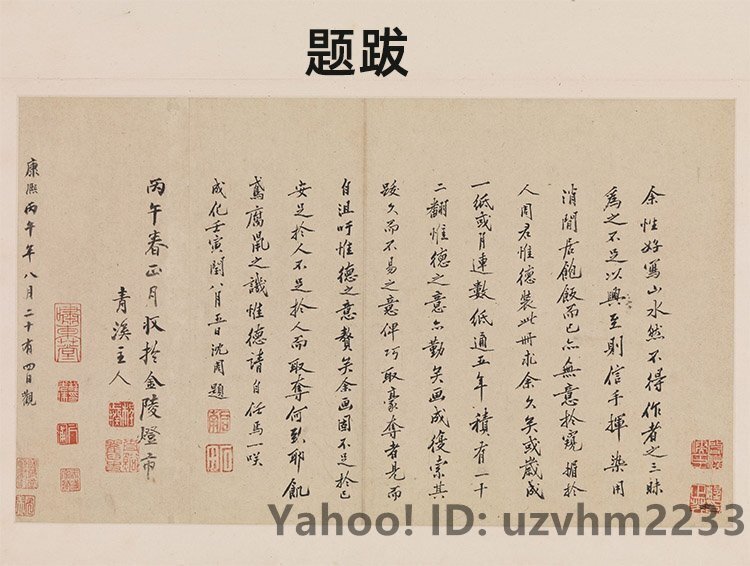 题跋
余性好寫山水然不得作者之三昧
爲之不足以興至則信手揮染用
消閒居飽飯而已亦無意於窺媚於
人周君惟德裝此冊求余久矣或歲成
一紙或月連數紙通五年積有一十
二翻惟德之意亦勤矣画成復索其
跋久而不易之意俾巧取豪奪者見而
自沮吁惟德之意贅矣余画固不足於己
安足於人不足於人而取奪何致耶飢
鳶腐鼠之譏惟德請自任焉一咲
成化壬寅閏八月五日沈周題
丙午春正月收於金陵燈市
青溪主人
康熙丙午年八月二十有四日觀
Yahoo! ID: uzvhm2233